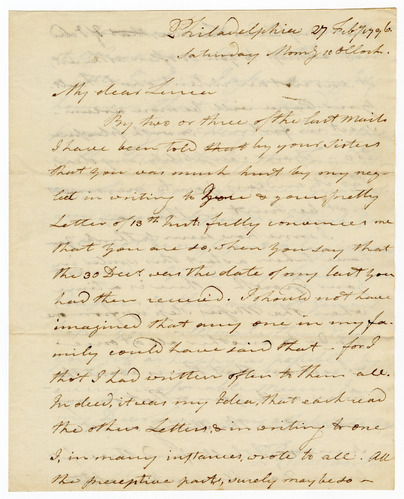 Philadelphia 27 Feby 1796.
Saturday Morng 10 oClock.
My dear
By two or three of the last Mails
I have been told that by your Sisters
that you was much hurt by my neg-
lect in writing to You & your pretty
Letter of 13th Inst: fully convinces me
that you are so, when you say that
the 30 Decr. was the date of my last you
had then received. I should not have
imagined that any one in my fa-
mily could have said that. for I
tho't I had written often to them all.
Indeed, it was my Idea, that each read
the others Letters, & in writing to one
I, in many instances, wrote to all: All
the preceptive parts, surely may be so –